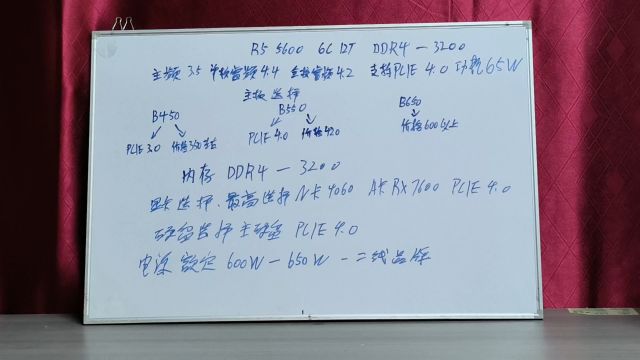 R5 5600 6C 12T DDR4-3200
主频3.5 单核睿频4.4 全核睿频4.2 支持PCIE 4.0 功耗65W
主板选择
B450 B550 B650
PCIE 3.0 价格350左右 PCIE 4.0 价格420 价格600以上
内存 DDR4-3200
显卡选择、最高选择N卡4060 A卡RX7600 PCIE 4.0
硬盘选择 主硬盘 PCIE 4.0
电源 额定 600W-650W-二线品牌